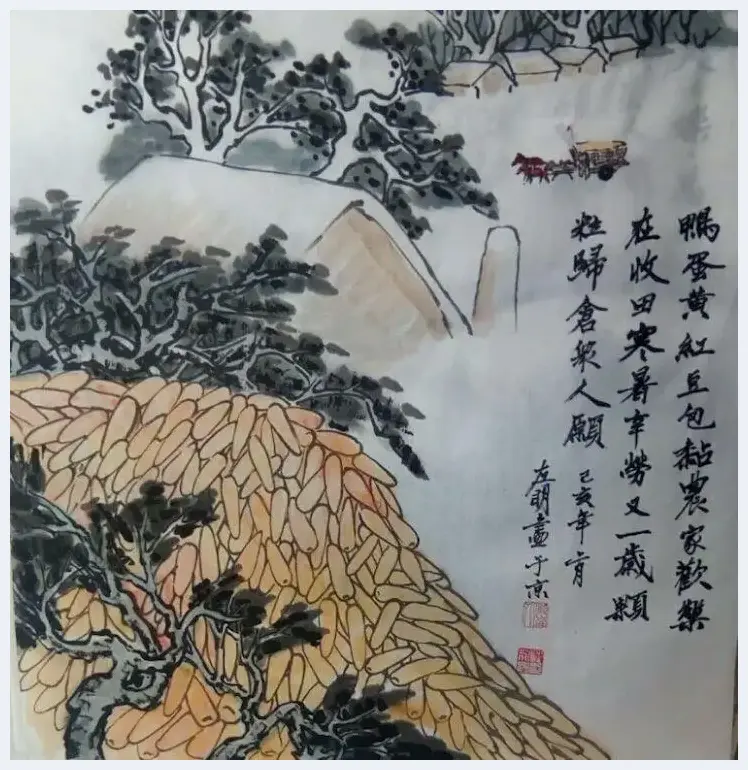 鴨蛋黄紅豆包黏農家歡樂
在收田寒暑辛勞又一歲顆
粒歸倉衆人願 己亥年月
左明畫于京